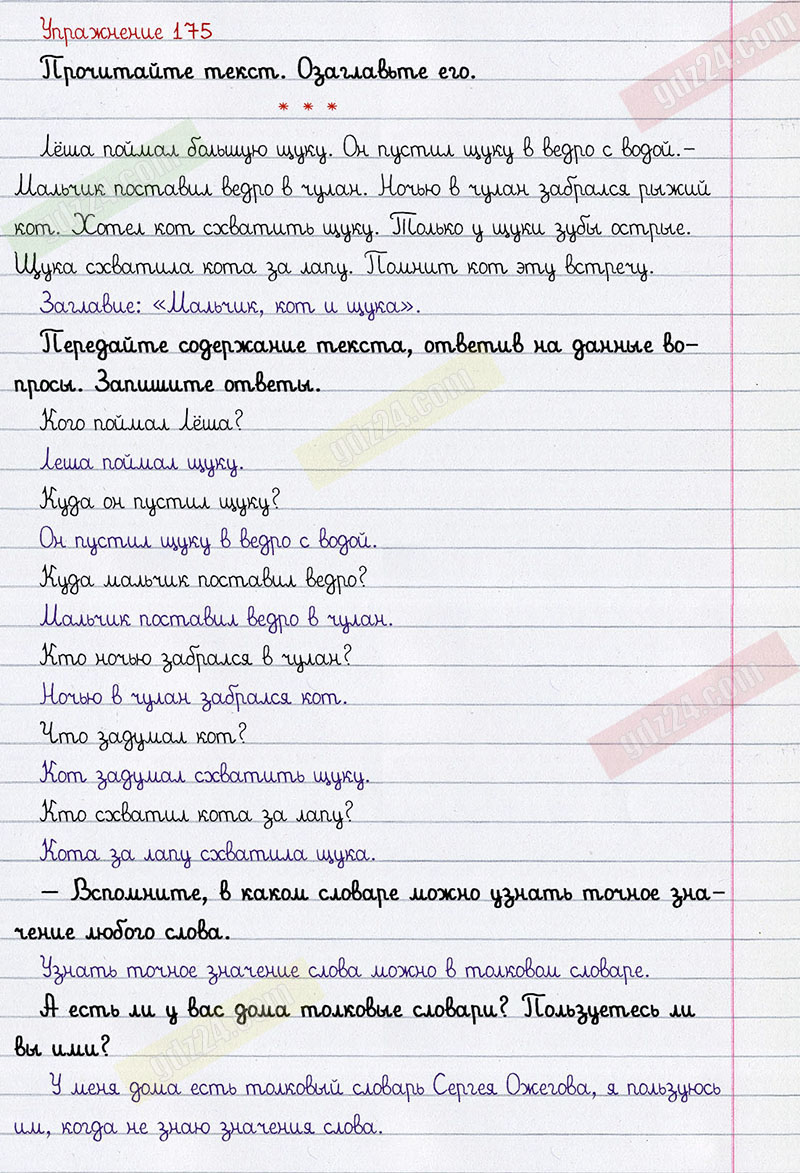 Упражнение 175
Прочитайте текст. Озаглавьте его.
* * *
Лёша поймал большую щуку. Он пустил щуку в ведро с водой.-
Мальчик поставил ведро в чулан. Ночью в чулан забрался рыжий
кот. Хотел кот схватить щуку. Только у щуки зубы острые.
Щука схватила кота за лапу. Помнит кот эту встречу.
Заглавие: «Мальчик, кот и щука».
Передайте содержание текста, ответив на данные во-
просы. Запишите ответы.
Кого поймал Лёша?
Леша поймал щуку.
Куда он пустил щуку?
Он пустил щуку в ведро с водой.
Куда мальчик поставил ведро?
Мальчик поставил ведро в чулан.
Кто ночью забрался в чулан?
Ночью в чулан забрался кот.
Что задумал кот?
Кот задумал схватить щуку.
Кто схватил кота за лапу?
Кота за лапу схватила щука.
– Вспомните, в каком словаре можно узнать точное зна-
чение любого слова.
Узнать точное значение слова можно в толковом словаре.
А есть ли у вас дома толковые словари? Пользуетесь ли
вы ими?
У меня дома есть толковый словарь Сергея Ожегова, я пользуюсь
им, когда не знаю значения слова.
gdz24.com
gdz24.com
gdz24.com
gdz24.com
gdz24.com